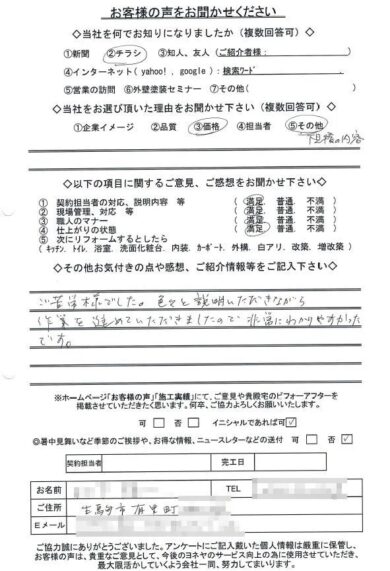 お客様の声をお聞かせください
◇当社を何でお知りになりましたか（複数回答可）◇
①新聞 ②チラシ ③知人、友人（ご紹介者様：　　　）
④インターネット（yahoo!，google）：検索ﾜｰﾄﾞ
⑤営業の訪問 ⑥外壁塗装セミナー ⑦その他（　　　）
◇当社をお選び頂いた理由をお聞かせ下さい（複数回答可）◇
①企業イメージ ②品質 ③価格 ④担当者 ⑤その他
の内容
◇以下の項目に関するご意見、ご感想をお聞かせ下さい◇
① 契約担当者の対応、説明内容 等 （ 満足. 普通. 不満 ）
② 現場管理、対応 等 （ 満足. 普通. 不満 ）
③ 職人のマナー （ 満足. 普通. 不満 ）
④ 仕上がりの状態 （ 満足. 普通. 不満 ）
⑤ 次にリフォームするとしたら
（ｷｯﾁﾝ. ﾄｲﾚ. 浴室. 洗面化粧台. 内装. ｶｰﾎﾟｰﾄ. 外構. 白アリ. 改築. 増改築）
◇その他お気付きの点や感想、ご紹介情報等をご記入下さい◇
ご苦労様でした。色々と説明いただきながら
作業を進めていただきましたので非常にわかりやすかった
です。
※ホームページ「お客様の声」「施工実績」にて、ご意見や貴殿宅のビフォーアフターを
掲載させていただきたく思います。何卒、ご協力よろしくお願いいたします。
可 □ 否 □ イニシャルであれば可 ☑
◎暑中見舞いなど季節のご挨拶や、お得な情報、ニュースレターなどの送付 可 □ 否 ☑
契約担当者 完工日
お名前 TEL
ご住所 生駒市
Ｅメール
ご協力誠にありがとうございました。アンケートにご記入戴いた個人情報は厳重に保管し、
お客様の声は、貴重なご意見として、今後のヨネヤのサービス向上の為に使用させていただき、
最大限活かしていくよう会社一同、努力してまいります。